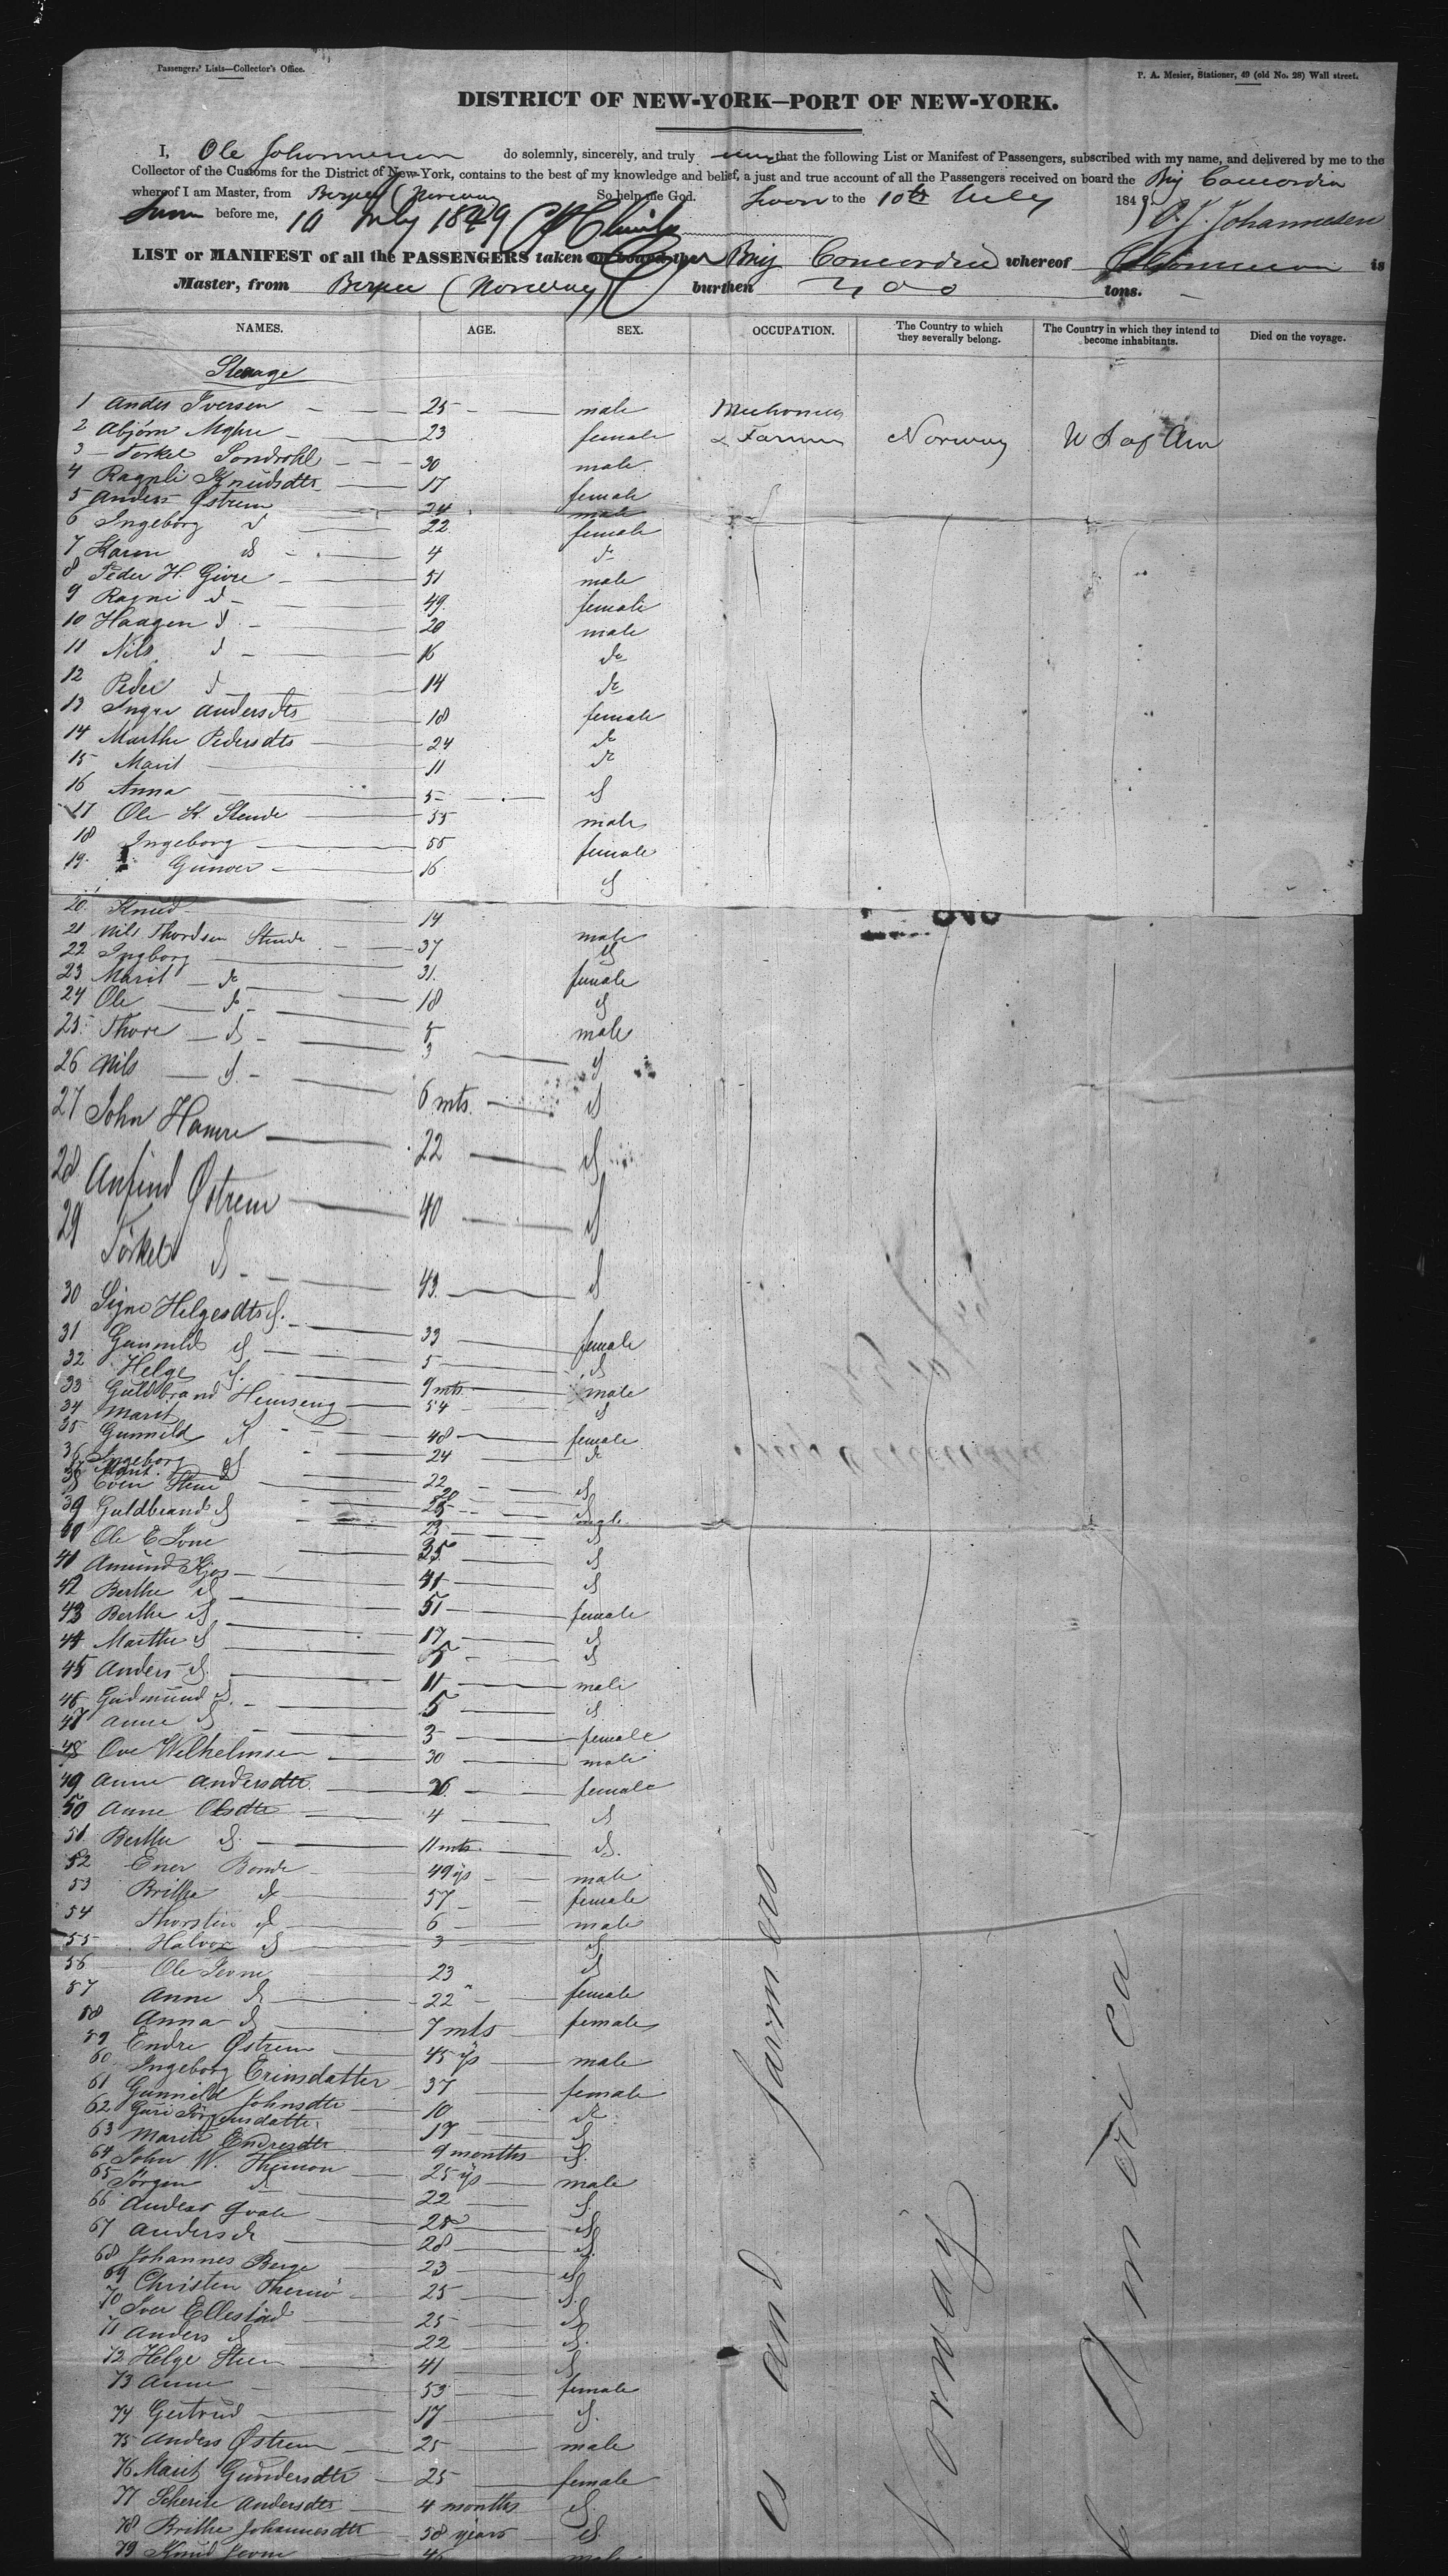 Passengers' Lists—Collector's Office.
P. A. Mesier, Stationer, 49 (old No. 28) Wall street.
DISTRICT OF NEW-YORK—PORT OF NEW-YORK.
I, Ole Johannesen do solemnly, sincerely, and truly that the following List or Manifest of Passengers, subscribed with my name, and delivered by me to the
Collector of the Customs for the District of New-York, contains to the best of my knowledge and belief, a just and true account of all the Passengers received on board the Brig Concordia
whereof I am Master, from Bergen (Norway) So help me God. Sworn to the 10th July 184
before me, 10 July 1849 O. J. Johannesen
LIST or MANIFEST of all the PASSENGERS taken on board the Brig Concordia whereof is
Master, from Bergen (Norway) burthen tons.
NAMES. AGE. SEX. OCCUPATION. The Country to which they severally belong. The Country in which they intend to become inhabitants. Died on the voyage.
Steerage
1 Andes Iversen 25 male Mechanics
2 Abjörn 23 female & Farmers Norway U S of Am
3 Torkel Sondrohl 30 male
4 Ragnli Knudsdtr 17 female
5 Anders Østrem 24 male
6 Ingeborg d 22 female
7 Karen do 4 do
8 Peder H. Givre 51 male
9 Ragni d 49 female
10 Haagen d 20 male
11 Nils d 16 do
12 Peder d 14 do
13 Andersdtr 18 female
14 Marthe Pedersdtr 24 do
15 Marit 11 do
16 Anna 5 do
17 Ole K. Stende 55 male
18 Ingeborg 55 female
19 Gunver 16 do
20 Knud 14 male
21 Nils Thordsen Stende 37 do
22 Ingborg 31 female
23 Marit do 18 do
24 Ole do 5 male
25 Thore do 3 do
26 Nils do 6 mts. do
27 John Hamre 22 do
28 Anfind Østrem 40 do
29 Torkel do 43 do
30 Signe Helgesdtr do 33 female
31 Gunnild do 5 do
32 Helge do 9 mts. male
33 Guldbrand Hemseng 54 do
34 Marit 48 female
35 Gunnild do 24 do
36 Ingeborg do 22 do
37 Marit 20 do
38 Even 25 male
39 Guldbrand do 23 do
40 Ole E 35 do
41 Amund Kjos 41 do
42 Berthe do 51 female
43 Berthe do 17 do
44 Marthe do 15 do
45 Anders do 11 male
46 Gudmund do 5 do
47 Anne do 3 female
48 Ove Wilhelmsen 30 male
49 Anne Andersdtr 26 female
50 Anne Olsdtr 4 do
51 Berthe do 11 mts. do
52 Ener Bonde 49 ys male
53 Brithe do 57 female
54 Thorstin do 6 male
55 Halvor do 3 do
56 Ole 23 do
57 Anne do 22 female
58 Anna do 7 mts female
59 Endre Østrem 45 ys male
60 Ingeborg Erinsdatter 37 female
61 Gunnild Johnsdtr 10 do
62 Guri 17 do
63 Marite Endresdtr 9 months do
64 John W. 25 ys male
65 Jörgen do 22 do
66 Anders Qvale 28 do
67 Anders do 28 do
68 Johannes Berge 23 do
69 Christen 25 do
70 Iver Ellestad 25 do
71 Anders do 22 do
72 Helge Steen 41 do
73 Anne 53 female
74 Gertrud 17 do
75 Anders Østrem 25 male
76 Marit Gundersdtr 25 female
77 Andersdtr 4 months do
78 Brithe Johannesdtr 58 years do
79 Knud male
es and farmers
Norway
America